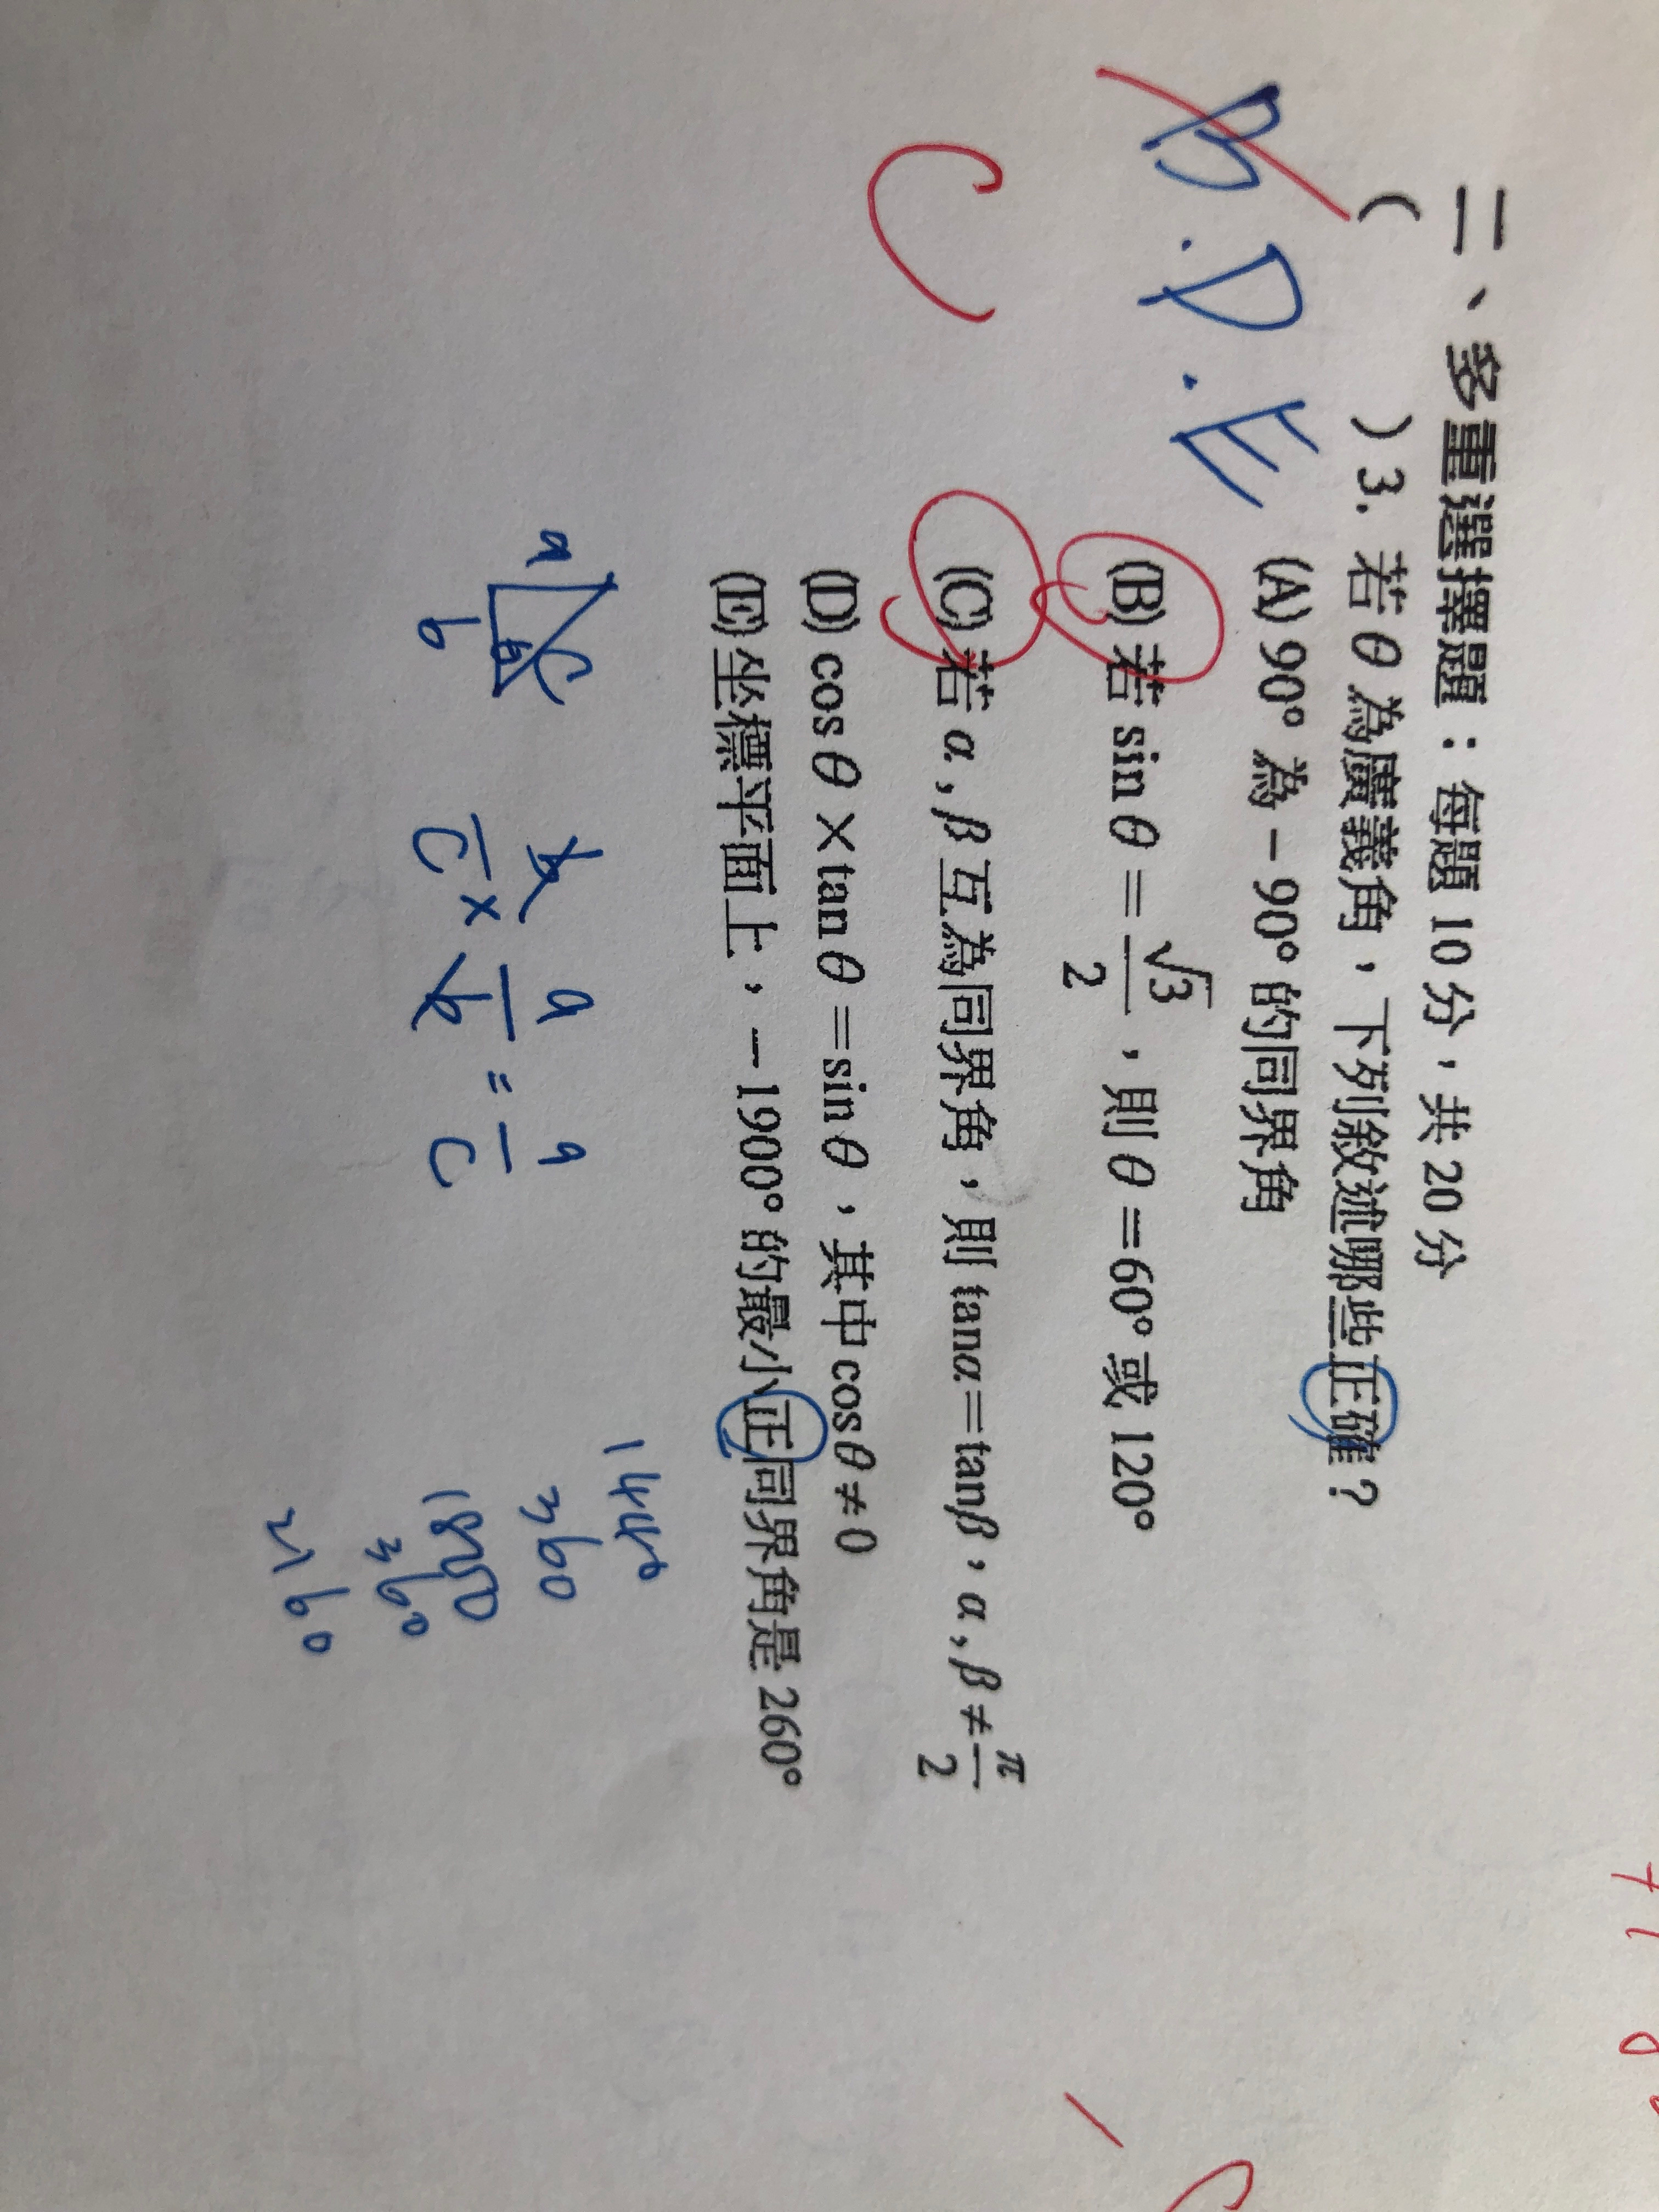 二、多重選擇題：每題 10 分，共 20 分
B.D.E
(　　) 3. 若 θ 為廣義角，下列敘述哪些正確？
(A) 90° 為 −90° 的同界角
(B) 若 sin θ = √3/2，則 θ = 60° 或 120°
C
(C) 若 α, β 互為同界角，則 tanα = tanβ，α, β ≠ π/2
(D) cos θ × tan θ = sin θ，其中 cos θ ≠ 0
(E) 坐標平面上，−1900° 的最小正同界角是 260°
a c b
360
360